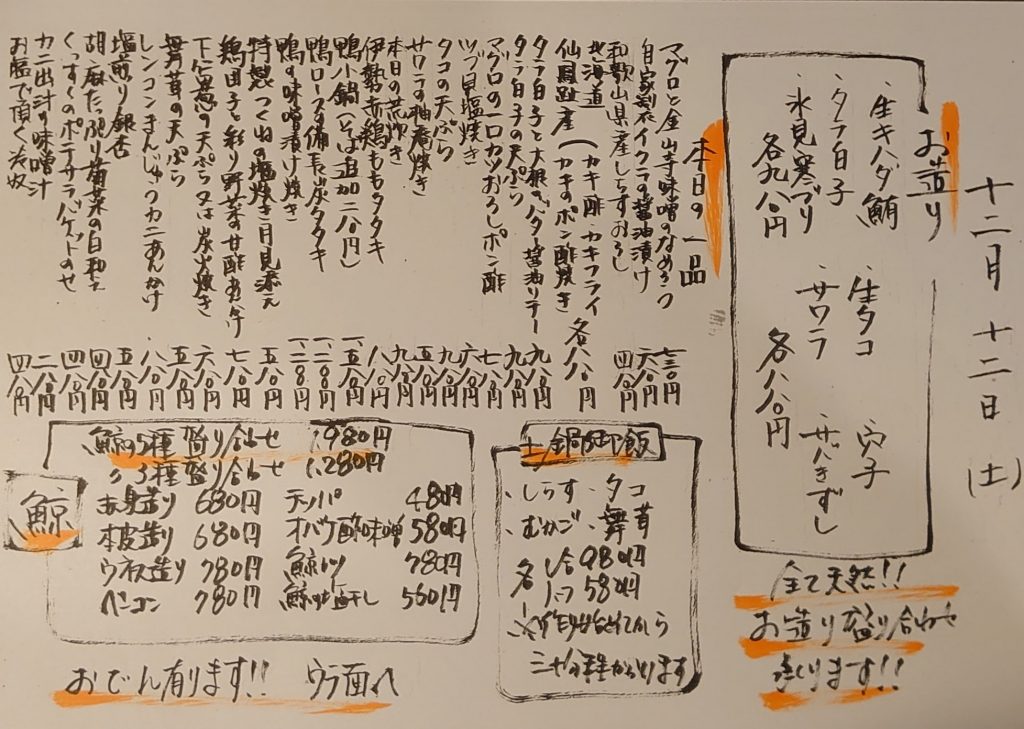 十二月十二日(土)
お造り
・生キハダ鮪 ・生タコ 穴子
・タラ白子 ・サワラ ・サバきずし
・氷見寒ブリ
各九八〇円 各八八〇円
全て天然!!
お造り盛り合わせ
承ります!!
本日の一品
マグロと金山寺味噌のなめろう 七三〇円
自家製イクラの醤油漬け 六八〇円
和歌山県産しらすおろし 四八〇円
北海道
仙鳳趾産(カキ酢・カキフライ
(カキのポン酢炊き 各八八〇円
タラ白子と大根のバター醤油ソテー 九八〇円
タラ白子の天ぷら 九八〇円
マグロの一口カツおろしポン酢 七八〇円
ツブ貝塩焼き 六八〇円
タコの天ぷら 九八〇円
サワラの柚庵焼き 五八〇円
本日の荒炊き 九八〇円
伊勢赤鶏ももタタキ 八八〇円
鴨小鍋(そば追加二八〇円) 一、五八〇円
鴨ロースの備長炭タタキ 一、二八〇円
鴨の味噌漬け焼き 一、二八〇円
特製つくねの塩焼き月見添え 五八〇円
鶏団子と彩り野菜の甘酢あんかけ 七八〇円
下仁田葱の天ぷら又は炭火焼き 六八〇円
舞茸の天ぷら 五八〇円
レンコンまんじゅうカニあんかけ 八八〇円
塩煎り銀杏 五八〇円
胡麻たっぷり菊菜の白和え 四八〇円
くつすくのポテサラバゲットのせ 四八〇円
カニ出汁の味噌汁 二八〇円
お塩で頂く冷奴 四八〇円
鯨
鯨の5種盛り合せ 1,980円
〃3種盛り合せ 1,280円
赤身造り 680円 テッパ 480円
本皮造り 680円 オバウ酢味噌 580円
ウネス造り 780円 鯨カツ 780円
ベーコン 780円 鯨の一夜干し 560円
土鍋御飯
・しらす ・タコ
・むかご ・舞茸
各 1合 980円
1/2 580円
おでん有ります!! ウラ面へ